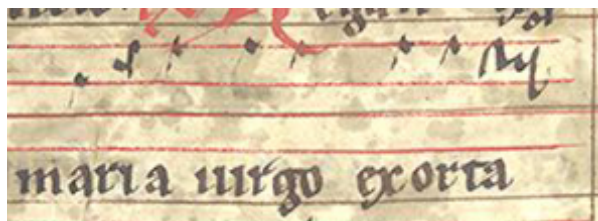 maria uirgo exorta